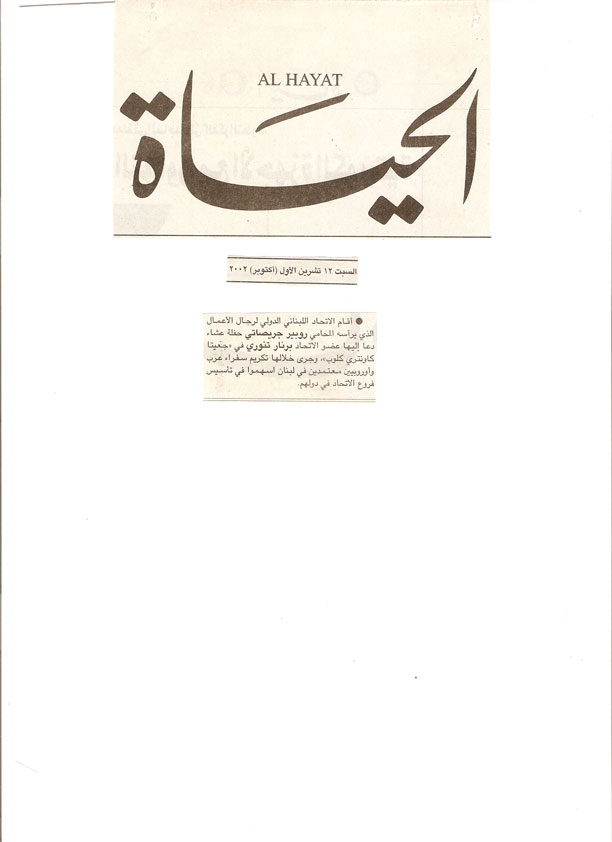 AL HAYAT
الحياة
السبت ١٢ تشرين الأول (أكتوبر) ٢٠٠٢
● أقام الاتحاد اللبناني الدولي لرجال الأعمال
الذي يرأسه المحامي روبير جريصاتي حفلة عشاء
دعا إليها عضو الاتحاد برنار تنوري في «جعيتا
كاونتري كلوب»، وجرى خلالها تكريم سفراء عرب
وأوروبيين معتمدين في لبنان اسهموا في تأسيس
فروع الاتحاد في دولهم.